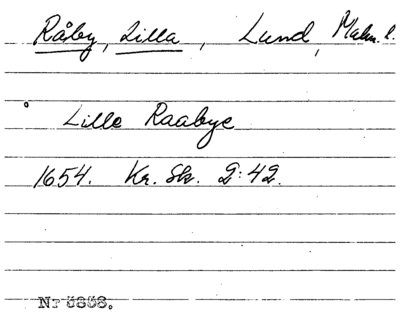 Råby, Lilla, Lund, Malm. l.
Lille Raabye
1654. Kr. Sk. 2:42.
Nr 5858.